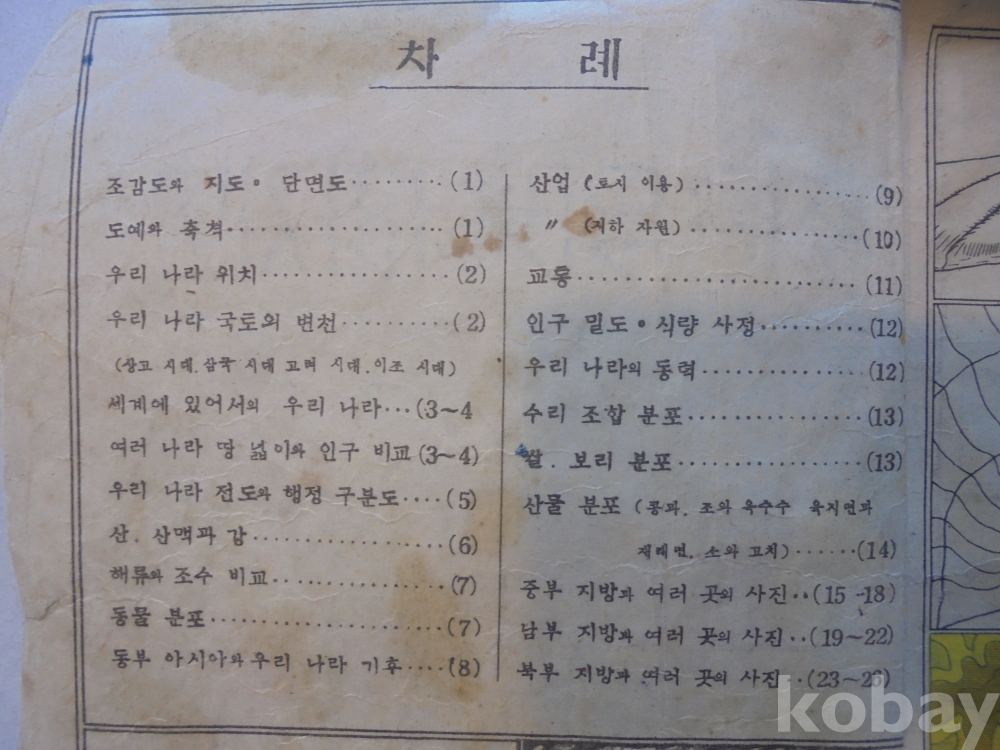 차 례
조감도와 지도・단면도·········(1)
도예와 축척·····················(1)
우리 나라 위치··················(2)
우리 나라 국토의 변천··········(2)
(상고 시대. 삼국 시대 고려 시대. 이조 시대)
세계에 있어서의 우리 나라···(3~4
여러 나라 땅 넓이와 인구 비교(3~4)
우리 나라 전도와 행정 구분도····(5)
산. 산맥과 강··················(6)
해류와 조수 비교···············(7)
동물 분포······················(7)
동부 아시아와 우리 나라 기후····(8)
산업 (토지 이용)···············(9)
〃 (지하 자원)···············(10)
교통·························(11)
인구 밀도・식량 사정··········(12)
우리 나라의 동력··············(12)
수리 조합 분포················(13)
쌀. 보리 분포·················(13)
산물 분포 (콩과. 조와 옥수수 육지면과
재래면. 소와 고치)······(14)
중부 지방과 여러 곳의 사진··(15-18)
남부 지방과 여러 곳의 사진··(19~22)
북부 지방과 여러 곳의 사진··(23~26)
kobay